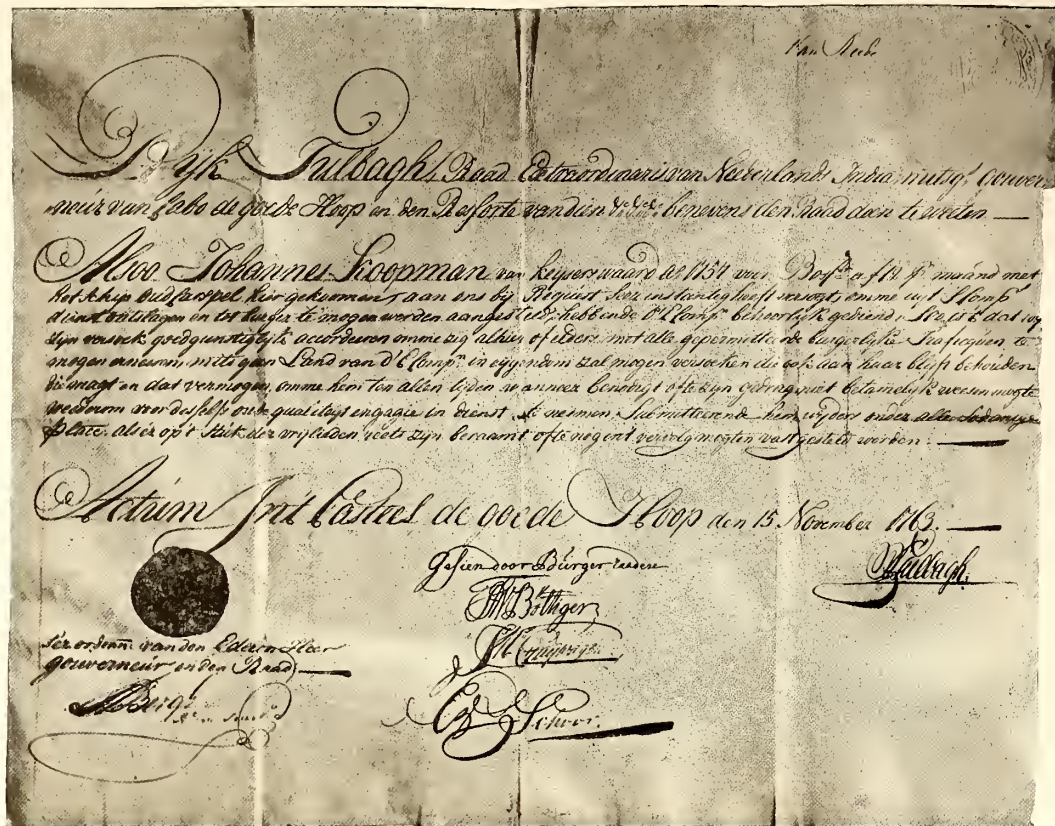 Van Reede
Rijk Tulbagh, Raad Extraordinaris van Nederlands India mitsgs. Gouver
neur van Cabo de goede Hoop en den Ressorte van dien benevens den Raad doen te weten
Alsoo Johannes Koopman van Keyserswaard A:o 1751 voor Boss: a f 14 p:r maand met
het schip Oud Carspel hier gekomen, aan ons bij Request seer instantig heeft versogt, omme uyt 's Comp:s
dienst ontslagen en tot burger te mogen werden aangesteld, hebbende d'E Comp: behoorlijk gediend, Soo is 't dat wy
zijn versoek goedgunstiglijk accordeeren omme zig alhier of elders met alle gepermitteerde burgerlijke Traficquen te
mogen erneeren, mits geen Land van d'E Comp:e in eygendom zal mogen versoeken die ook aan haar blijft behouden
die magt en dat vermogen, omme hem ten allen tijden wanneer benodigt ofte zijn gedrag niet betamelijk weesen mogte
wederom voor desselfs oude qualiteyt en gagie in dienst te neemen, Submitteerende hem wijders onder alle sodanige
Placc:n als er op 't stuk der vrijlieden reets zijn beraamt ofte nog ent vervolg mogten vast gesteld werden.
Actum In't Casteel de goede Hoop den 15 November 1763.
Gesien door Burgerraaden
RTulbagh.
Böthger
Ter ordonn:e van den Edelen Heer
gouverneur en den Raad
JBerg
Schoor.